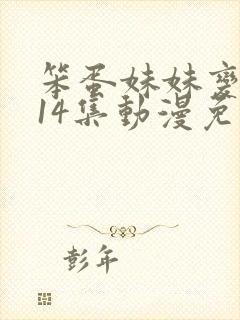 笨蛋妹妹变
14集动漫免
彭年